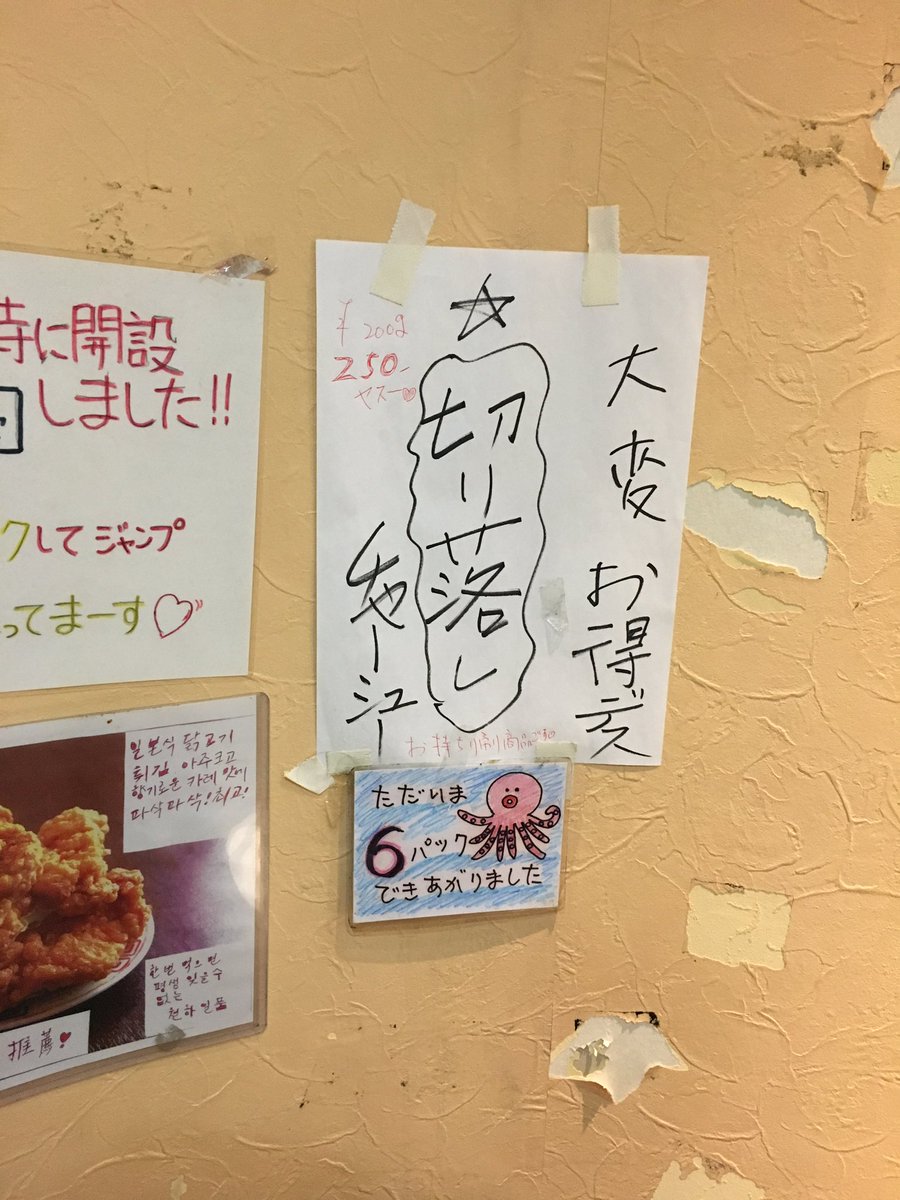 時に開設
しました!!
クしてジャンプ
ってまーす♡
¥200g
250-
ヤスー♡
☆
大変お得デス
切り落し
チャーシュー
お持ち帰り商品です
ただいま
6パック
できあがりました
일본식 닭고기
튀김 아주크고
향기로운 카레 맛에
파삭파삭!최고!
한번 먹으면
평생 잊을수
없는
천하일품
推薦!